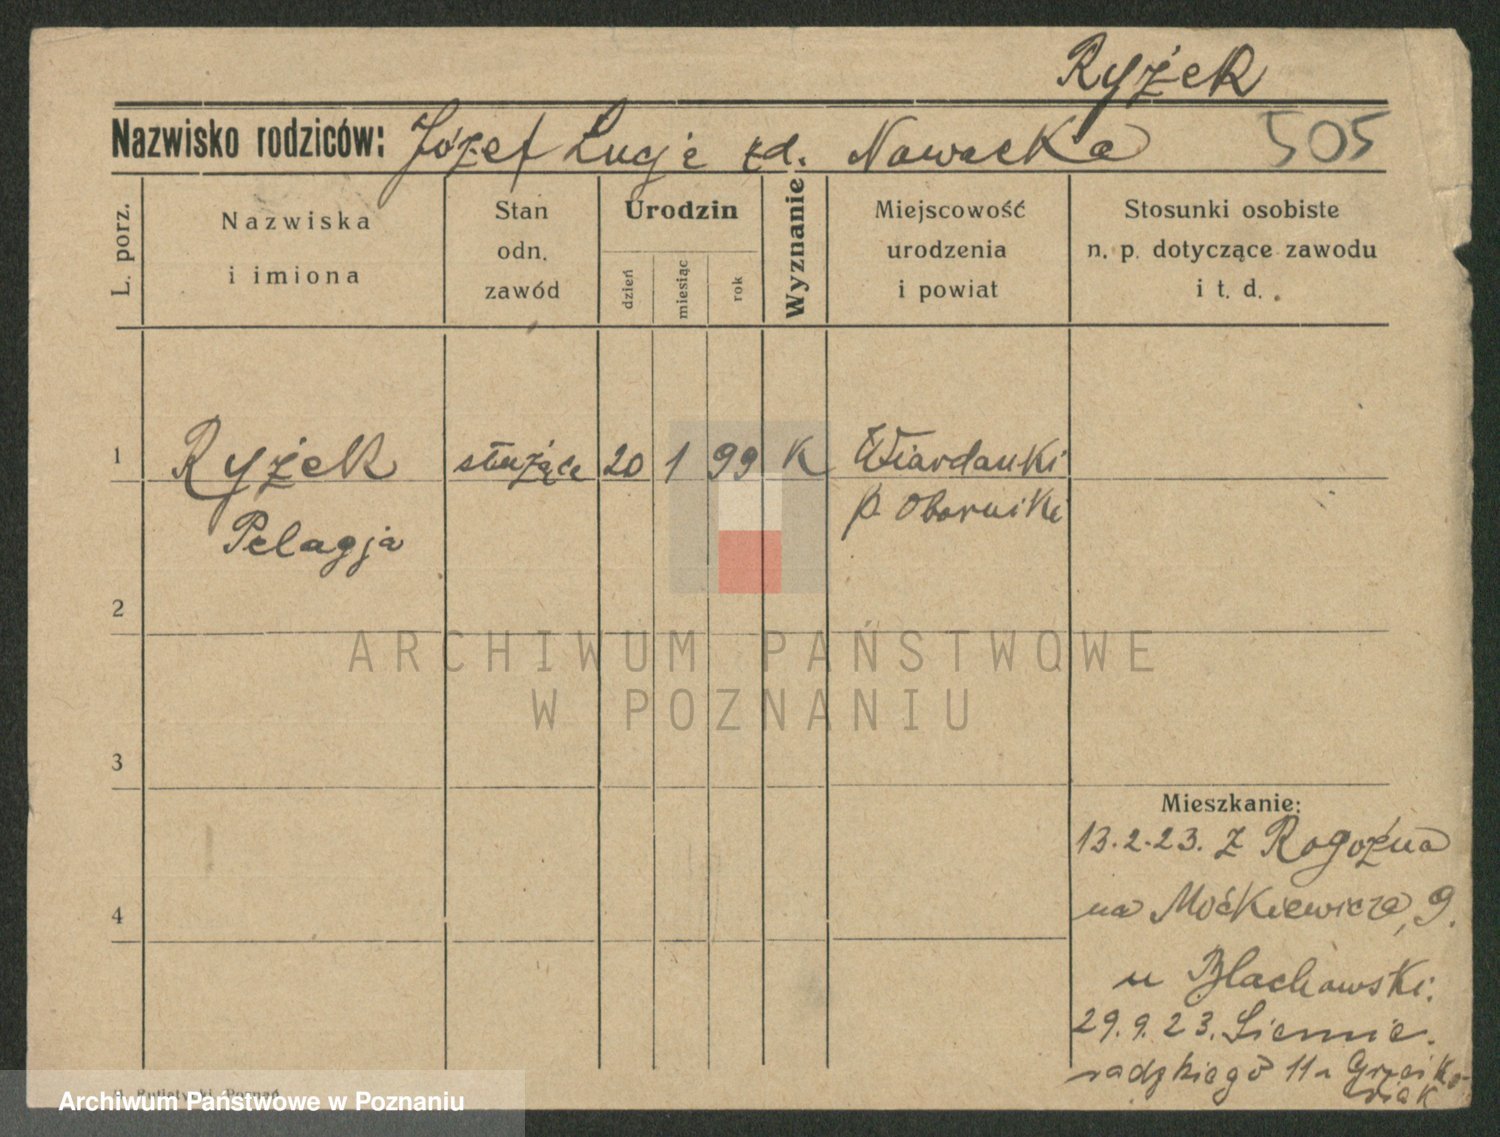 Ryżek
Nazwisko rodziców: Józef Łucja zd. Nowacka 505
L. porz.
Nazwiska
i imiona
Stan
odn.
zawód
Urodzin
dzień
miesiąc
rok
Wyznanie
Miejscowość
urodzenia
i powiat
Stosunki osobiste
n. p. dotyczące zawodu
i t. d.
1 Ryżek służąca 20 1 99 K Wiardunki
p. Oborniki
Pelagja
2
ARCHIWUM PAŃSTWOWE
W POZNANIU
3
Mieszkanie:
13.2.23. z Rogoźna
4
na Mućkiewicza, 9.
u Blachowski.
29.9.23. Siemie-
radzkiego 11
Archiwum Państwowe w Poznaniu